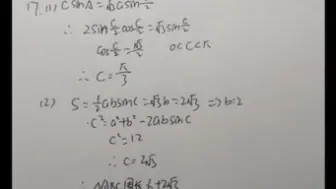 17. (1) c sinA = √3 a sin C/2
∴ 2sin C/2 cos C/2 = √3 sin C/2
cos C/2 = √3/2 0<C<π
∴ C = π/3
(2) S = 1/2 ab sinC = √3 b = 2√3 => b=2
c² = a² + b² - 2ab sin C
c² = 12
∴ c = 2√3
∴ △ABC周长 6+2√3